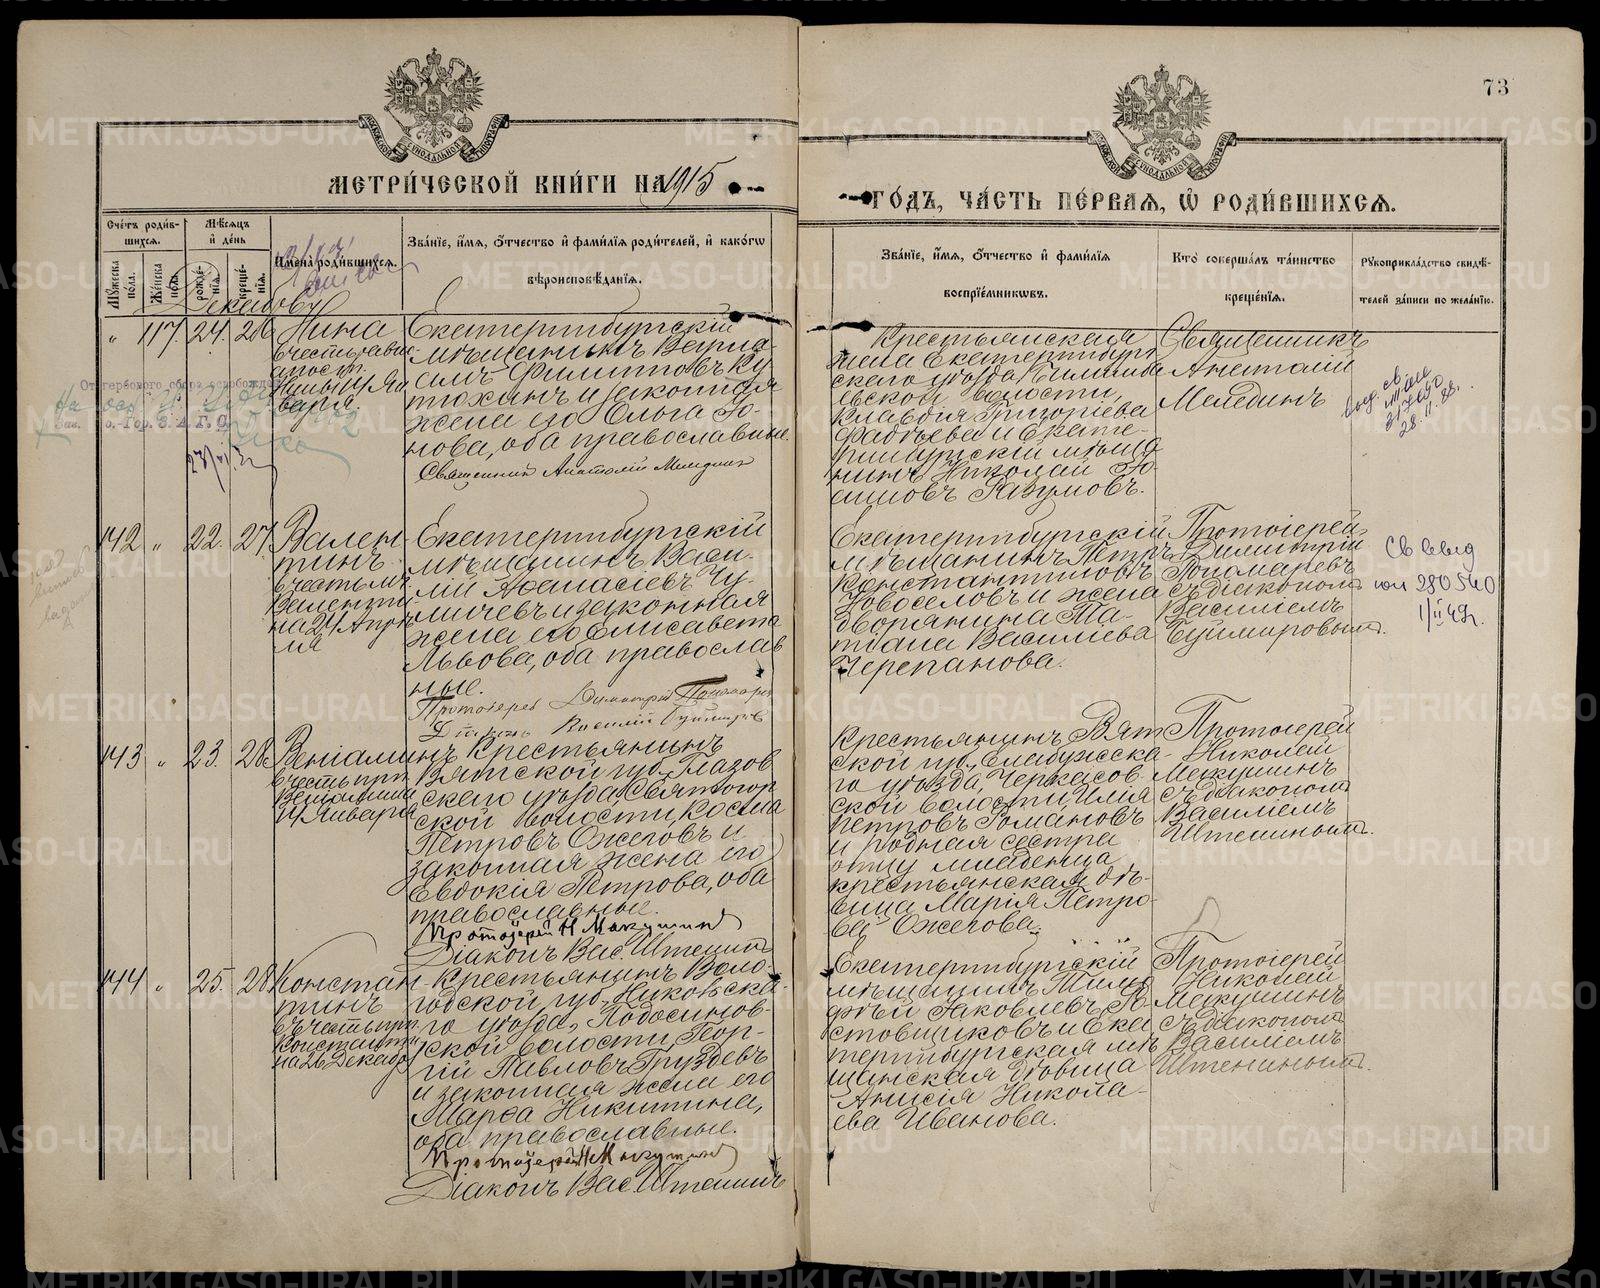 73
МОСКОВСКОЙ СѴНОДАЛЬНОЙ ТИПОГРАФІИ
МОСКОВСКОЙ СѴНОДАЛЬНОЙ ТИПОГРАФІИ
МЕТРИ́ЧЕСКОЙ КНИ́ГИ НА 1915
ГО́ДЪ, ЧА́СТЬ ПЕ́РВАЯ, Ѡ҆ РОДИ́ВШИХСЯ.
Сче́тъ роди́в-
шихся.
Мꙋ́жеска
по́ла.
Же́нска
по́ла.
Мѣ́сяцъ
и҆ де́нь
рожде́-
нія.
креще́-
нія.
И҆мена̀ роди́вшихся.
Зва́ніе, и҆́мя, ѻ҆́тчество и҆ фами́лія роди́телей, и҆ како́гѡ
вѣроисповѣ́данія.
Зва́ніе, и҆́мя, ѻ҆́тчество и҆ фами́лія
воспріе́мникѡвъ.
Кто̀ соверша́лъ та́инство
креще́нія.
Рꙋкоприкла́дство свидѣ́-
телей за́писи по жела́нію.
Декабрь
" 117. 24. 26
Нина
въ честь равн
апост.
Нины 14 Ян
варя
Екатеринбургскій
мѣщанинъ Веніа-
минъ Филипповъ Ку
тюхинъ и законная
жена его Ольга Іо-
нова, оба православные.
Священникъ Анатолій Меледин
Крестьянская
жена Екатеринбург
скаго уѣзда, Билимба
евской волости,
Клавдія Григорьева
Фадѣева и Екате-
ринбургскій мѣща
нинъ Николай Іо-
акимовъ Разумовъ.
Священникъ
Анатолій
Мелединъ
От гербового сбора освобожд
З. А. Г. С.
142 " 22. 27.
Вален
тинъ
въ честь мч.
Валенти
на 24 Апрѣ
ля
Екатеринбургскій
мѣщанинъ Васи-
лій Аѳанасіевъ Чу-
мичевъ и законная
жена его Елисавета
Львова, оба православ
ные.
Протоіерей Димитрій Пономарев
Діаконъ Василій Буймиров
Екатеринбургскій
мѣщанинъ Петръ
Константиновъ
Новоселовъ и жена
дворянина Та-
тіана Василіева
Черепанова.
Протоіерей
Димитрій
Пономаревъ
съ діакономъ
Василіемъ
Буймировымъ.
Св выд
юл 280540
1/II 49г.
143 " 23. 28.
Веніаминъ
въ честь прп.
Веніамина
14 Января
Крестьянинъ
Вятской губ., Глазов
скаго уѣзда, Святогор
ской волости, Косма
Петровъ Ожеговъ и
законная жена его
Евдокія Петрова, оба
православные.
Протоіерей Н Макушин
Діаконъ Вас. Штенинъ
Крестьянинъ Вят
ской губ., Елабужска-
го уѣзда, Черкасов-
ской волости, Илія
Петровъ Романовъ
и родная сестра
отцу младенца
крестьянская дѣ-
вица Марія Петро-
ва Ожегова.
Протоіерей
Николай
Макушинъ
съ діакономъ
Василіемъ
Штенинымъ.
144 " 25. 28
Констан
тинъ
въ честь прп.
Константи
на 26 Декабр
Крестьянинъ Воло-
годской губ., Никольска-
го уѣзда, Подосинов-
ской волости, Геор-
гій Павловъ Груздевъ
и законная жена его
Марѳа Никитина,
оба православные.
Протоіерей Н Макушин
Діаконъ Вас. Штенинъ
Екатеринбургскій
мѣщанинъ Тимо
фей Яковлевъ Ро-
стовщиковъ и Ека
теринбургская мѣ
щанская дѣвица
Анисія Никола-
ева Иванова.
Протоіерей
Николай
Макушинъ
съ діакономъ
Василіемъ
Штенинымъ.
METRIKI.GASO-URAL.RU